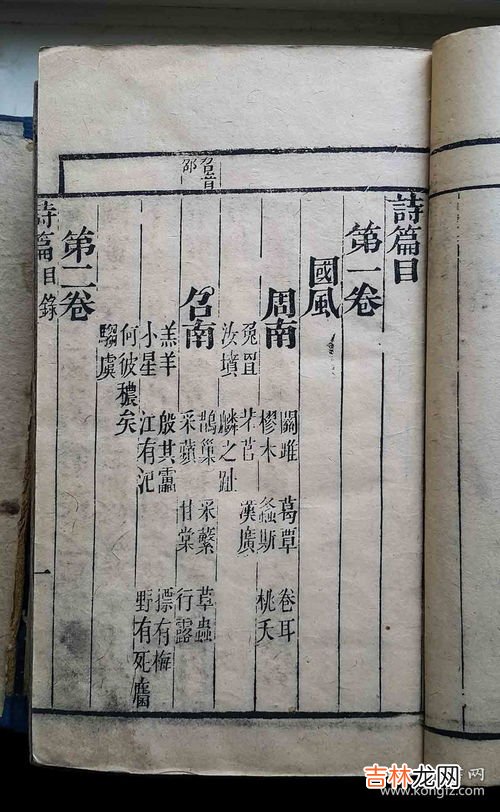 詩篇目
第一卷
國風
周南
關雎 葛覃 卷耳
樛木 螽斯 桃夭
兔罝 芣苢 漢廣
汝墳 麟之趾
召音
邵
召南
鵲巢 采蘩 草蟲
采蘋 甘棠 行露
羔羊 殷其靁 摽有梅
小星 江有汜 野有死麕
何彼穠矣
騶虞
第二卷
詩篇目錄 一
吉林龙网
www.kongfz.com